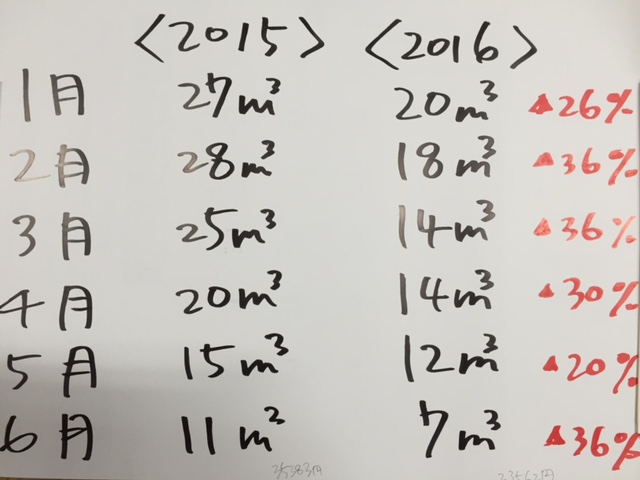 <2015> <2016>
1月 27m³ 20m³ ▲26%
2月 28m³ 18m³ ▲36%
3月 25m³ 14m³ ▲36%
4月 20m³ 14m³ ▲30%
5月 15m³ 12m³ ▲20%
6月 11m² 7m³ ▲36%